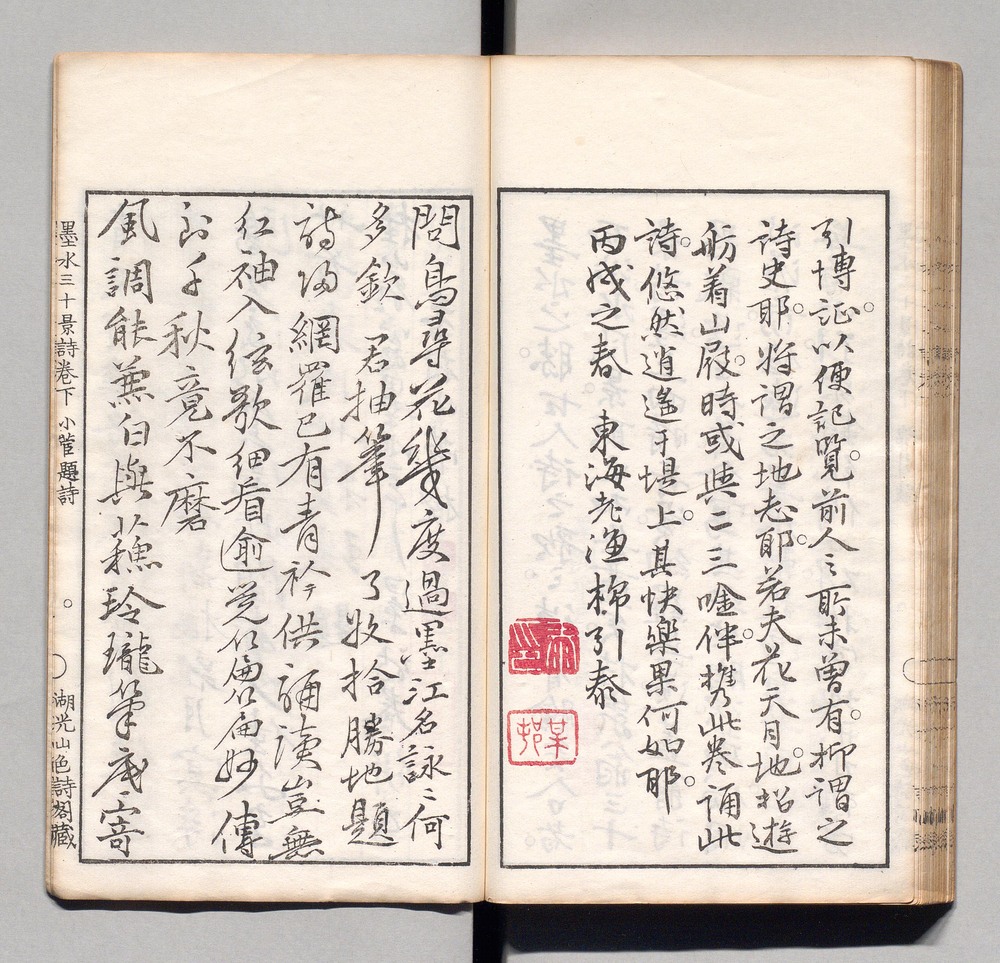 引博証。以便記覧。前人之所未曽有。抑謂之
詩史耶。将謂之地志耶。若夫花天月地。招遊
舫着山屐。時或与二三唫伴。携此巻誦此
詩。悠然逍遥于堤上。其快楽果何如耶。
丙戌之春。東海老漁棉引泰
問鳥尋花幾度過墨江名詠々何
多欽君抽筆了收拾勝地題
詩网羅已有青衿供誦読豈無
紅袖入絃歌細看逾覚篇篇妙傳
到千秋竟不磨
風調能兼白与蘇玲瓏筆底寄
墨水三十景詩巻下 小菅題詩
湖光山色詩閣蔵